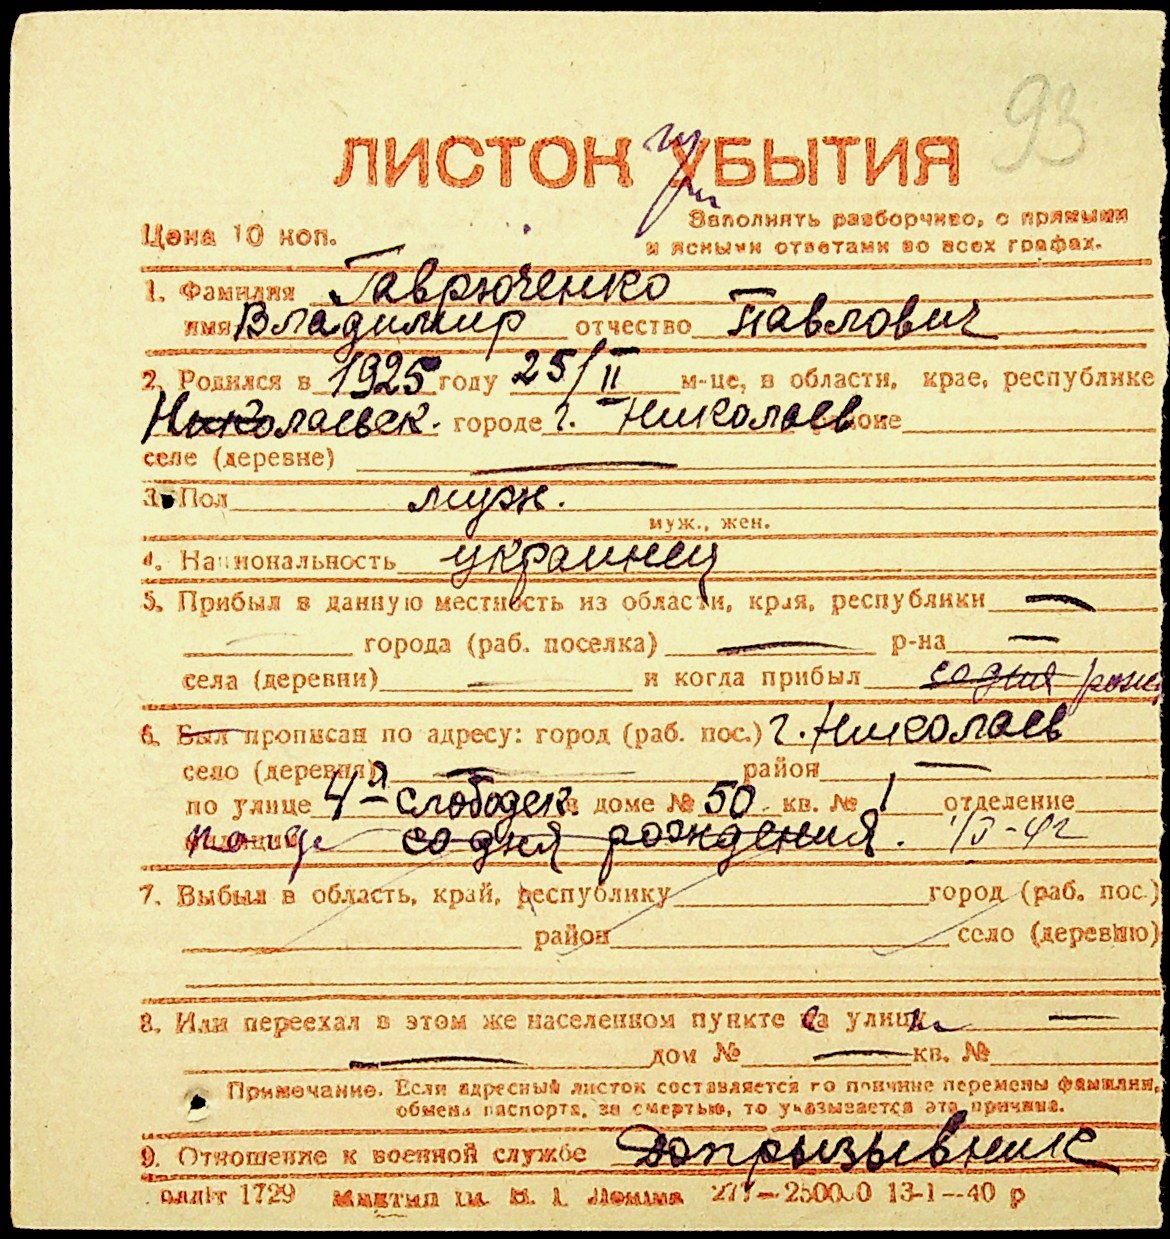 93
ЛИСТОК УБЫТИЯ
Цена 10 коп.
Заполнять разборчиво, с прямыми
и ясными ответами во всех графах.
1. Фамилия Гаврюченко
имя Владимир отчество Павлович
2. Родился в 1925 году 25/II м-це, в области, крае, республике
Николаевск. городе г. Николаев районе
селе (деревне) —
3. Пол муж.
муж., жен.
4. Национальность украинец
5. Прибыл в данную местность из области, края, республики —
города (раб. поселка) — р-на —
села (деревни) — и когда прибыл со дня рожд
6. Был прописан по адресу: город (раб. пос.) г. Николаев
село (деревня) — район —
по улице 4-я Слободск. в доме № 50 кв. № 1 отделение
со дня рождения.
7. Выбыл в область, край, республику город (раб. пос.)
район село (деревню)
8. Или переехал в этом же населенном пункте на улицу —
— дом № — кв. №
Примечание. Если адресный листок составляется по причине перемены фамилии,
обмена паспорта, за смертью, то указывается эта причина.
9. Отношение к военной службе Допризывник
1729 им. В. І. Леніна 277—250000 13-1—40 р